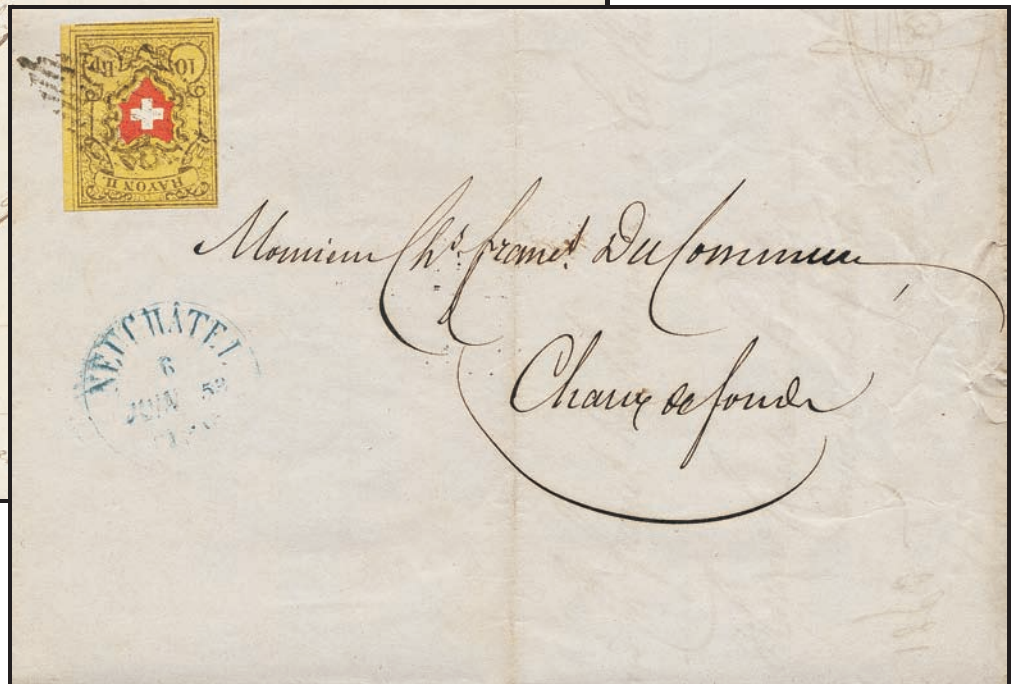 10 Rp.
RAYON II.
Monsieur Chs. franc. DuCommun
Chaux de fonds
NEUCHÂTEL
6
JUIN 52